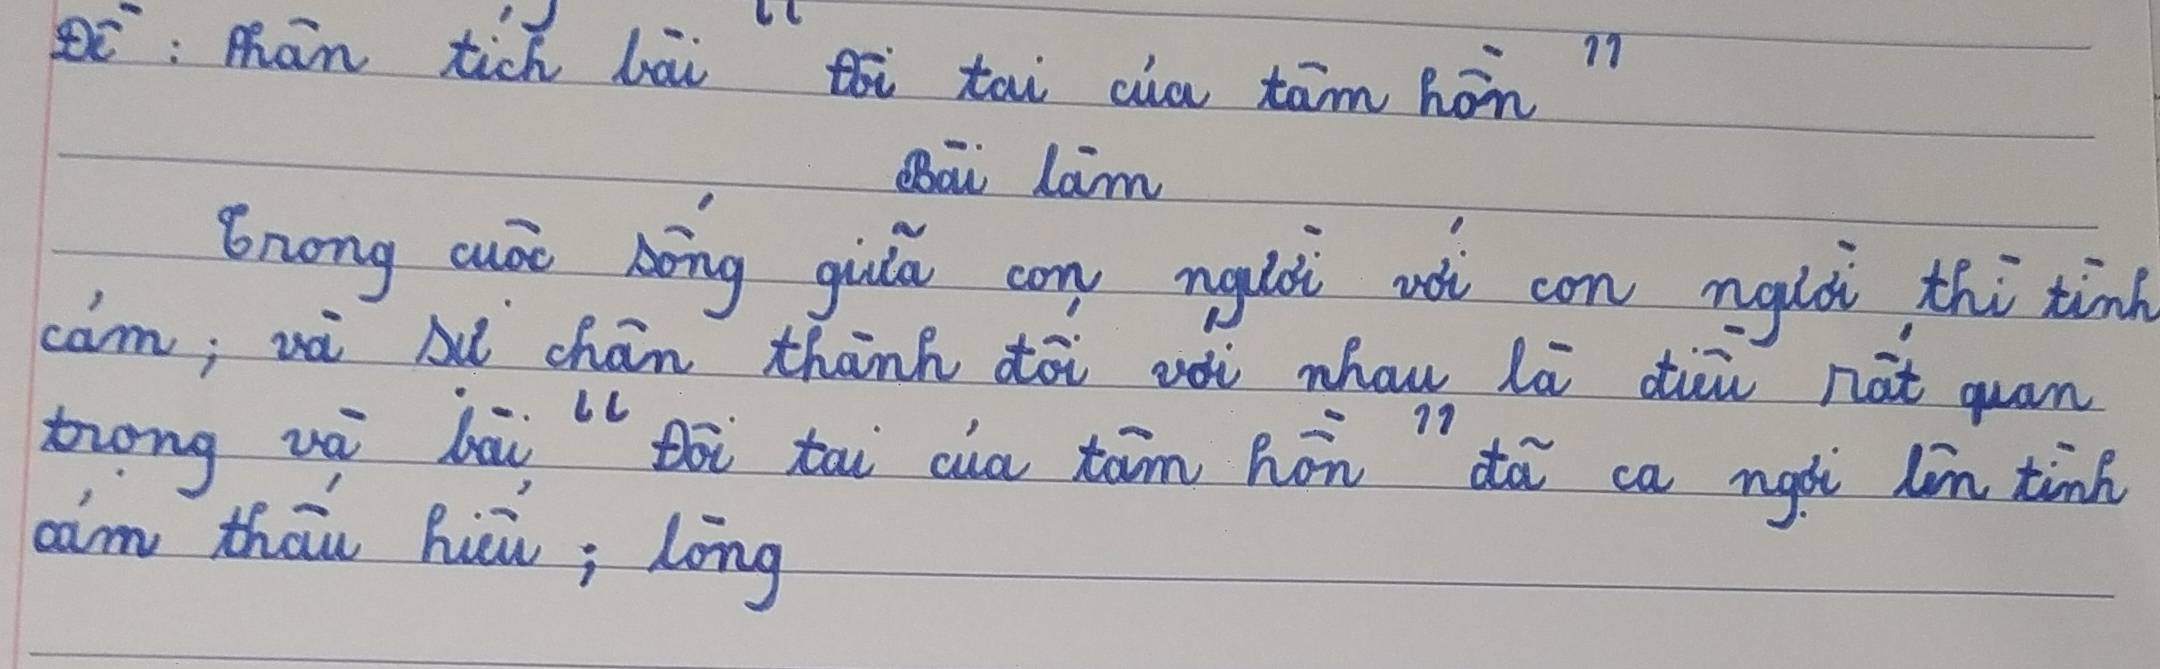 Đề: Phân tích bài "Đôi tai của tâm hồn"
Bài làm
Trong cuộc sống giữa con người với con người thì tình
cảm; và sự chân thành đối với nhau là điều rất quan
trọng và bài "Đôi tai của tâm hồn" đã ca ngợi lên tình
cảm thấu hiểu; lòng